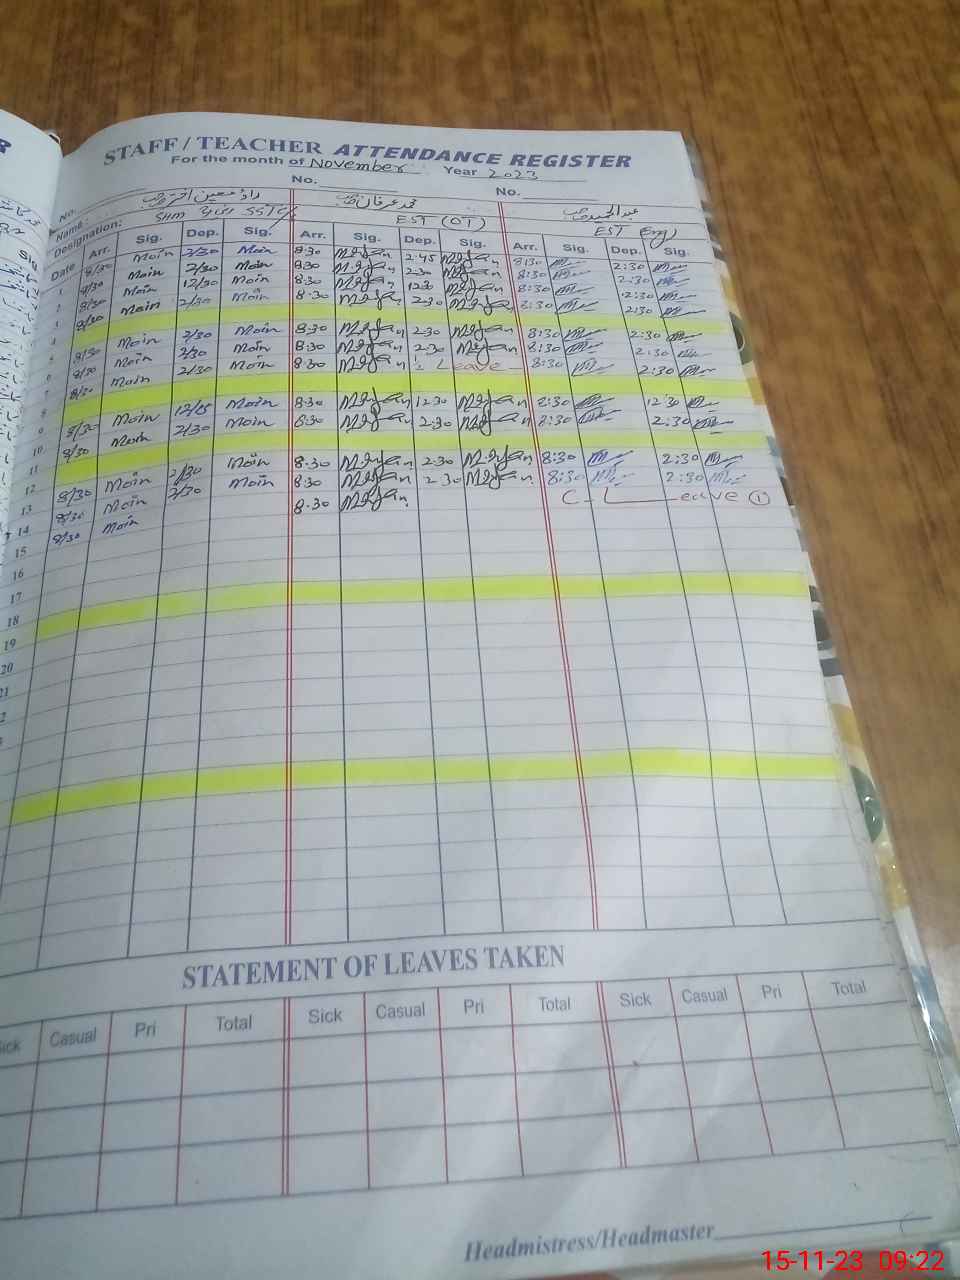 STAFF / TEACHER ATTENDANCE REGISTER
For the month of November Year 2023
No. No. No.
Name: راؤ معین اختر صاحب محمد عرفان صاحب عبدالحمید صاحب
Designation: EST (OT) EST Eng
Date Arr. Sig. Dep. Sig. Arr. Sig. Dep. Sig. Arr. Sig. Dep. Sig.
1 8/30 Moin 2/30 Moin 8:30 2:45 8:30 2:30
2 8/30 Moin 2/30 Moin 8:30 2:30 8:30 2:30
3 8/30 Moin 12/30 Moin 8:30 12:30 8:30 2:30
4 8/30 Moin 2/30 Moin 8:30 2:30 8:30 2:30
5
6 8/30 Moin 2/30 Moin 8:30 2:30 8:30 2:30
7 8/30 Moin 2/30 Moin 8:30 2:30 8:30 2:30
8 8/30 Moin 2/30 Moin 8:30 ½ Leave 8:30 2:30
9
10 8/30 Moin 12/15 Moin 8:30 12:30 8:30 12:30
11 8/30 Moin 2/30 Moin 8:30 2:30 8:30 2:30
12
13 8/30 Moin 2/30 Moin 8:30 2:30 8:30 2:30
14 8/30 Moin 2/30 Moin 8:30 2:30 8:30 2:30
15 8/30 Moin 8:30 C-Leave ①
16
17
18
19
20
21
STATEMENT OF LEAVES TAKEN
Sick Casual Pri Total Sick Casual Pri Total Sick Casual Pri Total
Headmistress/Headmaster
15-11-23 09:22